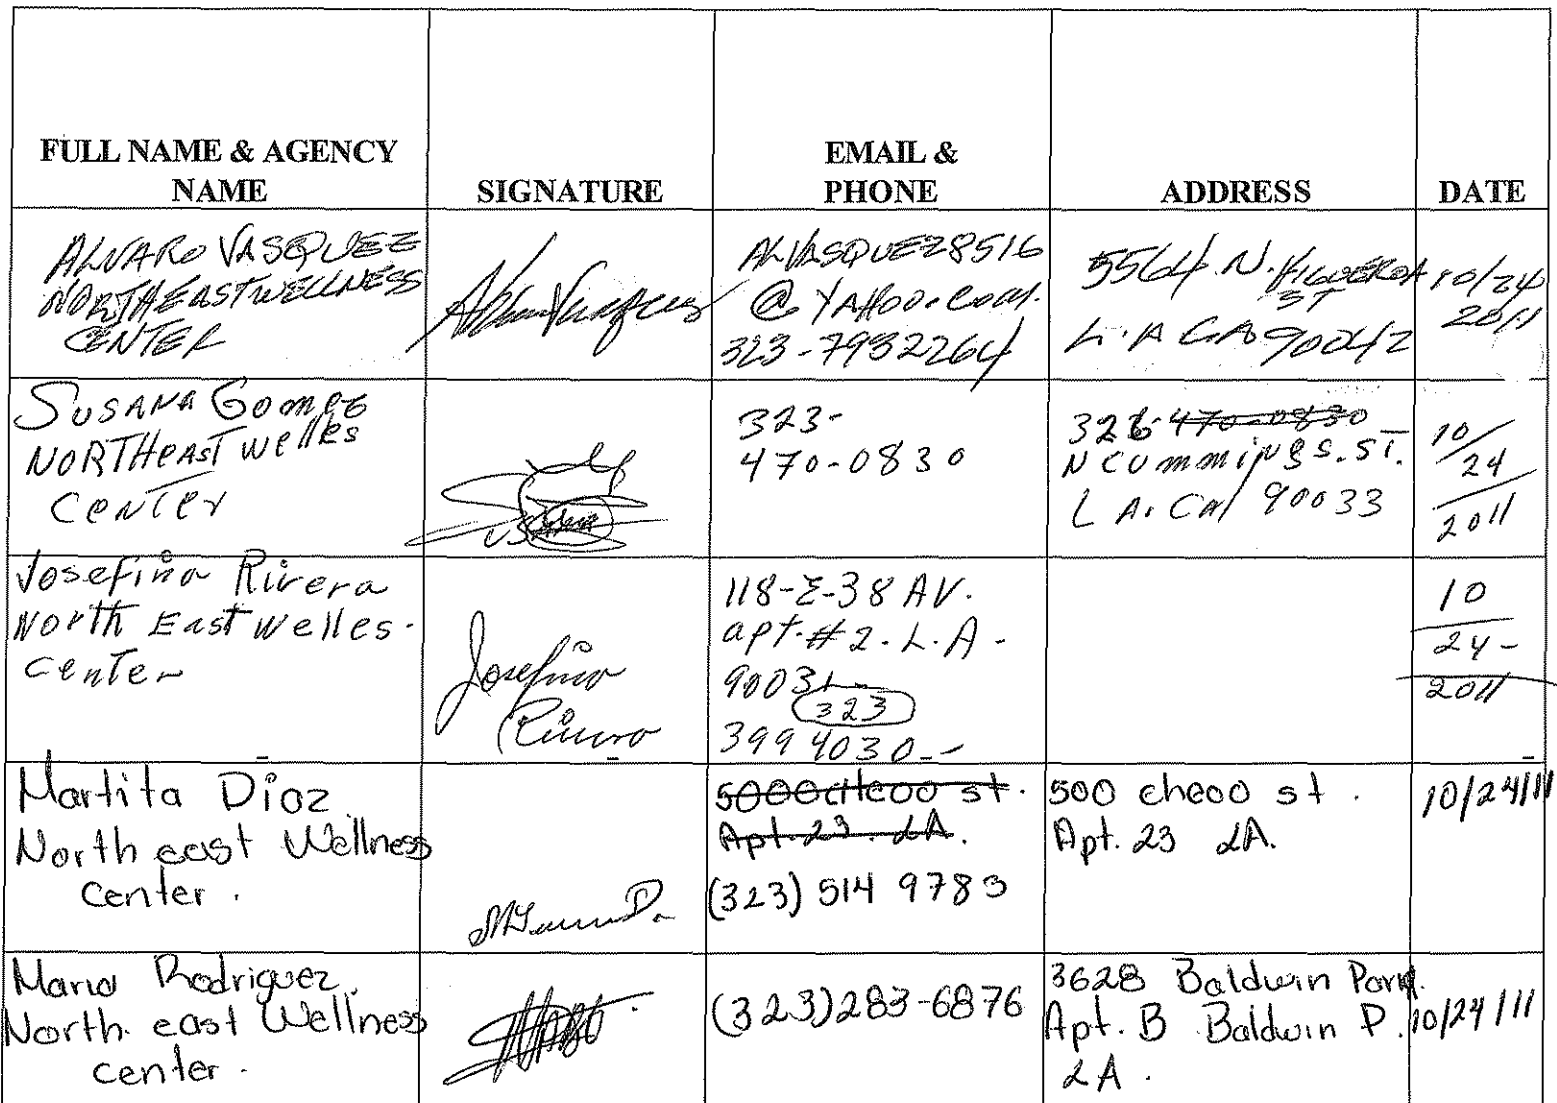 FULL NAME & AGENCY
NAME
SIGNATURE
EMAIL &
PHONE
ADDRESS
DATE
ALVARO VASQUEZ
NORTHEAST WELLNESS
CENTER
ALVASQUEZ8516
@ YAHOO.COM.
323-7932264
5564 N. FIGUEROA
ST
L.A CA 90042
10/24
2011
SUSANA GOMEZ
NORTHEAST Welles
CENTER
323-
470-0830
326 470-0830
N CUMMINGS. ST.
L A. Cal 90033
10/
24
2011
Josefina Rivera
North East welles.
center
Josefina
Rivera
118-E-38 AV.
apt. # 2. L.A -
90031
323
399 4030--
10
24-
2011
Martita Diaz
North east Wellness
center.
5000 st.
Apt. 23. LA.
(323) 514 9783
500 st.
Apt. 23 LA.
10/24/11
Maria Rodriguez.
North east Wellness
center.
(323)283-6876
3628 Baldwin Park.
Apt. B Baldwin P.
LA.
10/24/11